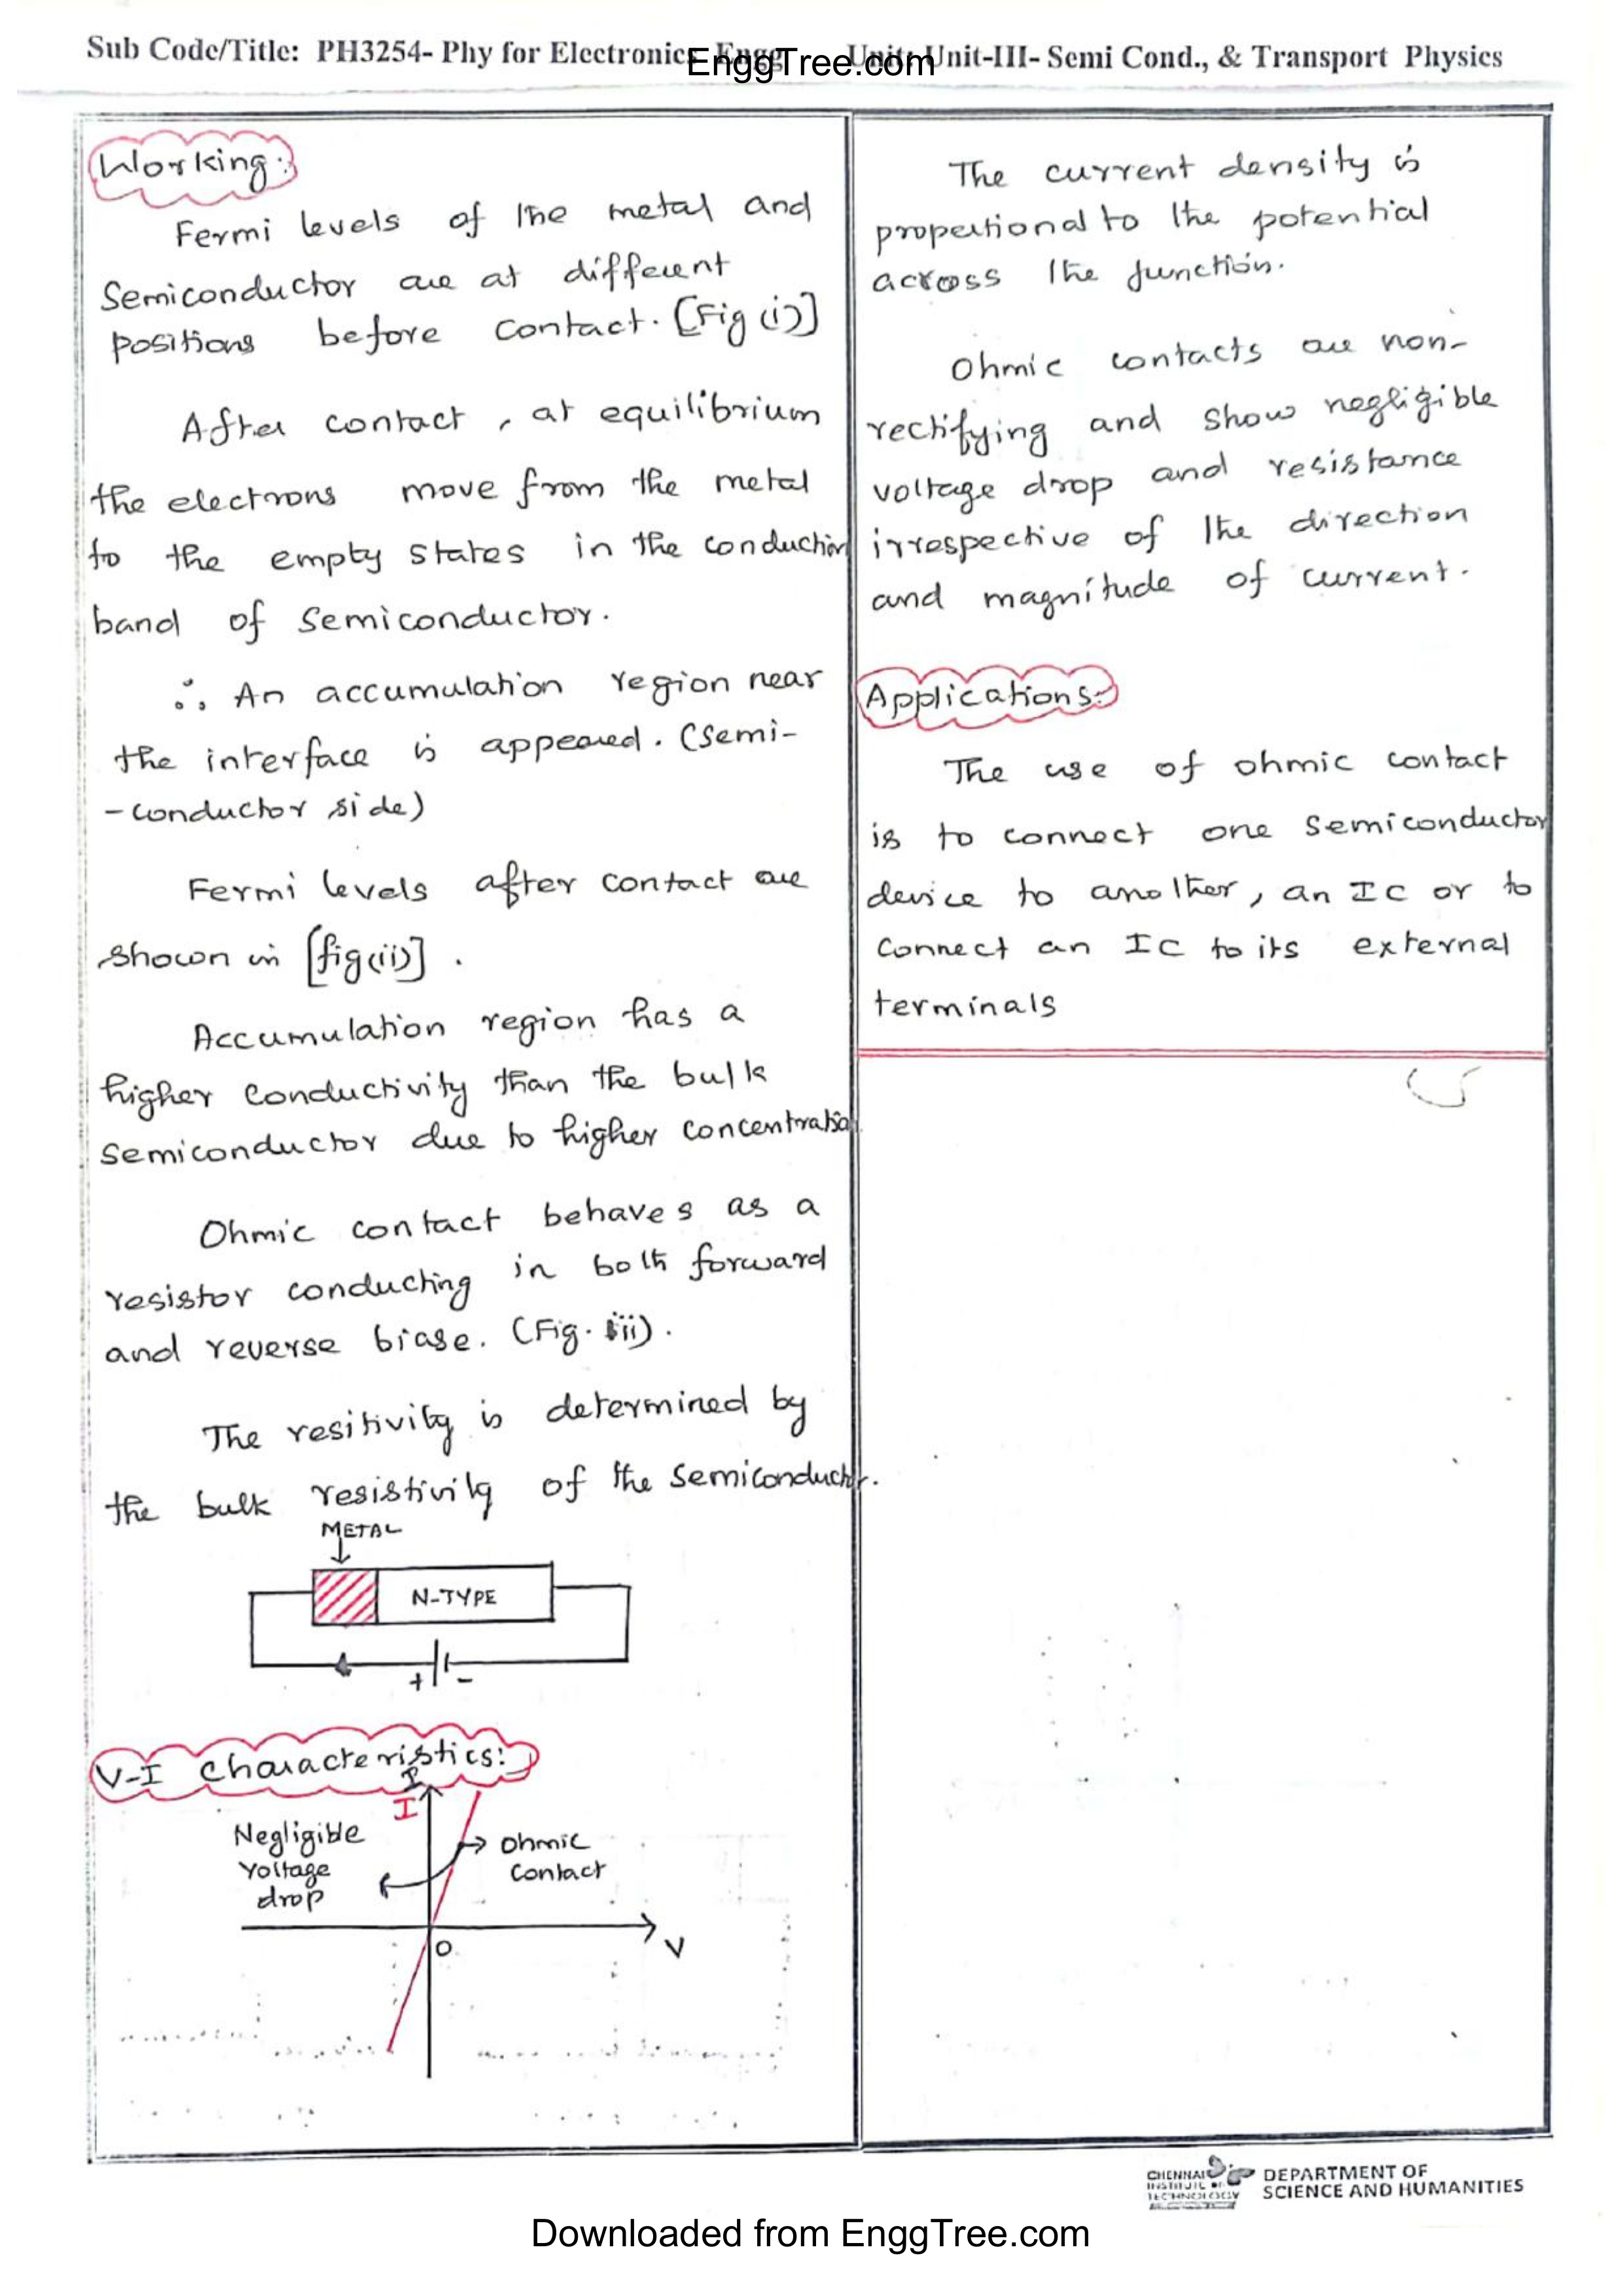 Sub Code/Title: PH3254- Phy for Electronics Engg Unit: Unit-III- Semi Cond., & Transport Physics
EnggTree.com
Working:
Fermi levels of the metal and
Semiconductor are at different
positions before contact. [Fig (i)]
After contact, at equilibrium
the electrons move from the metal
to the empty states in the conduction
band of semiconductor.
∴ An accumulation region near
the interface is appeared. (Semi-
-conductor side)
Fermi levels after contact are
shown in [fig(ii)].
Accumulation region has a
higher conductivity than the bulk
semiconductor due to higher concentration
Ohmic contact behaves as a
resistor conducting in both forward
and reverse biase. (Fig. iii).
The resitivity is determined by
the bulk resistivity of the semiconductor.
METAL
N-TYPE
+ -
V-I characteristics:
I
I
Negligible
voltage
drop
ohmic
contact
O
V
The current density is
propertional to the potential
across the junction.
Ohmic contacts are non-
rectifying and show negligible
voltage drop and resistance
irrespective of the direction
and magnitude of current.
Applications:
The use of ohmic contact
is to connect one semiconductor
device to another, an IC or to
connect an IC to its external
terminals
CHENNAI
INSTITUTE OF
TECHNOLOGY
DEPARTMENT OF
SCIENCE AND HUMANITIES
Downloaded from EnggTree.com